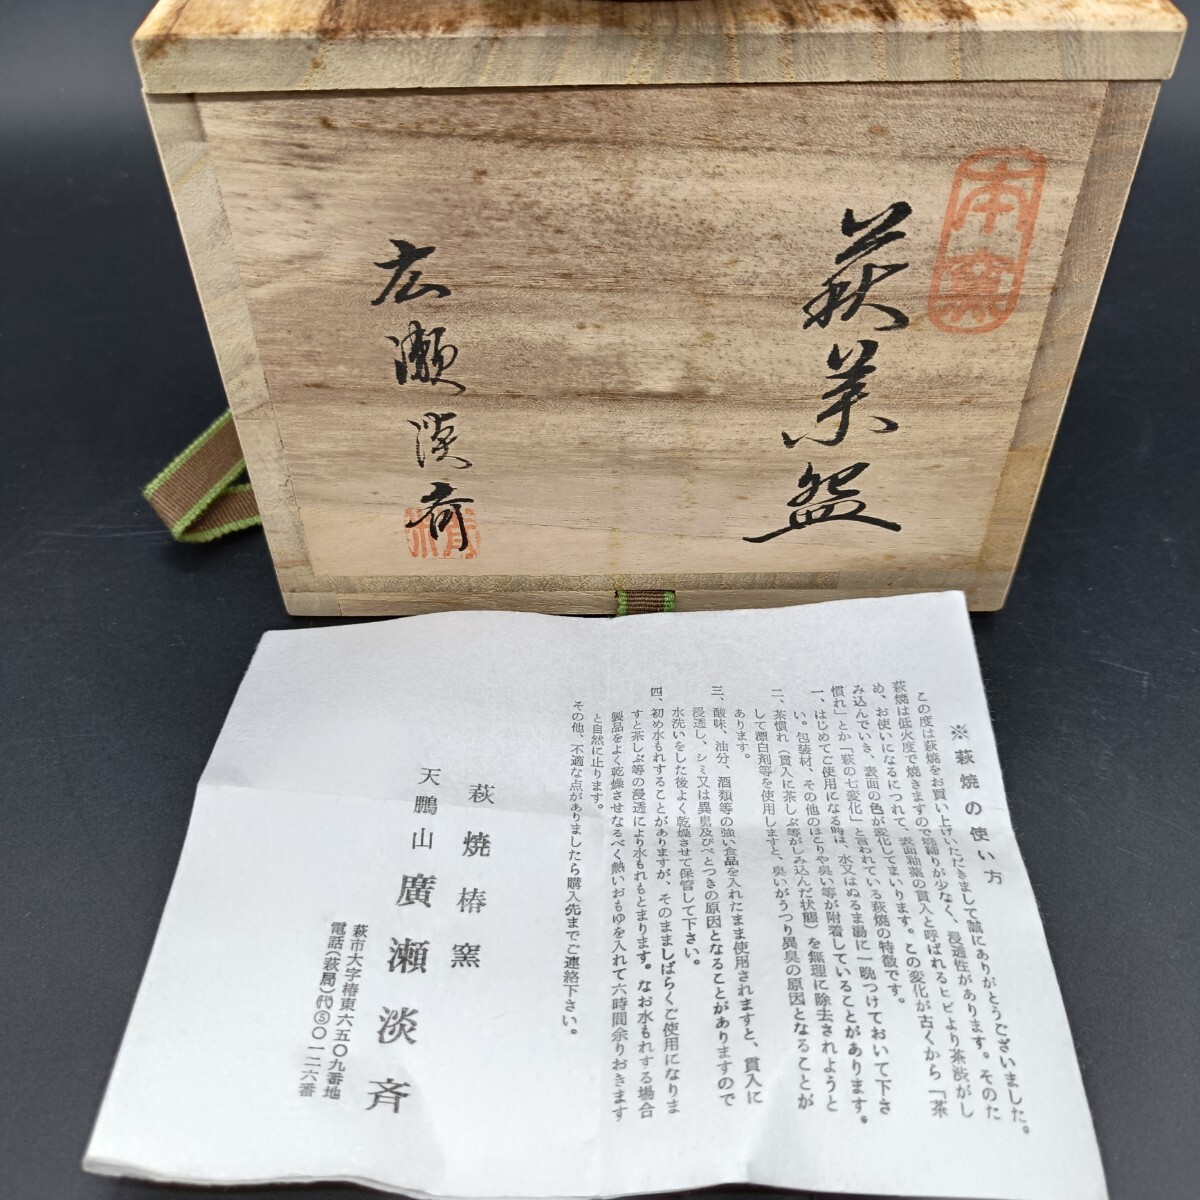 本窯
萩茶盌
広瀬淡斉
※萩焼の使い方
この度は萩焼をお買い上げいただきまして誠にありがとうございました。
萩焼は低火度で焼きますので焼締りが少なく、浸透性があります。そのた
め、お使いになるにつれて、表面釉薬の貫入と呼ばれるヒビより茶渋がし
み込んでいき、表面の色が変化してまいります。この変化が古くから「茶
慣れ」とか「萩の七変化」と言われている萩焼の特徴です。
一、はじめてご使用になる時は、水又はぬるま湯に一晩つけておいて下さ
い。包装材、その他のほこりや臭い等が附着していることがあります。
二、茶慣れ（貫入に茶しぶ等がしみ込んだ状態）を無理に除去されようと
して漂白剤等を使用しますと、臭いがうつり異臭の原因となることが
あります。
三、酸味、油分、酒類等の強い食品を入れたまま使用されますと、貫入に
浸透し、シミ又は異臭及びべとつきの原因となることがありますので
水洗いをした後よく乾燥させて保管して下さい。
四、初め水もれすることがありますが、そのまましばらくご使用になりま
すと茶しぶ等の浸透により水もれもとまります。なお水もれする場合
製品をよく乾燥させなるべく熱いおもゆを入れて六時間余りおきます
と自然に止ります。
その他、不適な点がありましたら購入先までご連絡下さい。
萩焼椿窯
天鵬山 廣瀬淡斉
萩市大字椿東六五〇九番地
電話（萩局）代⑤〇一二六番